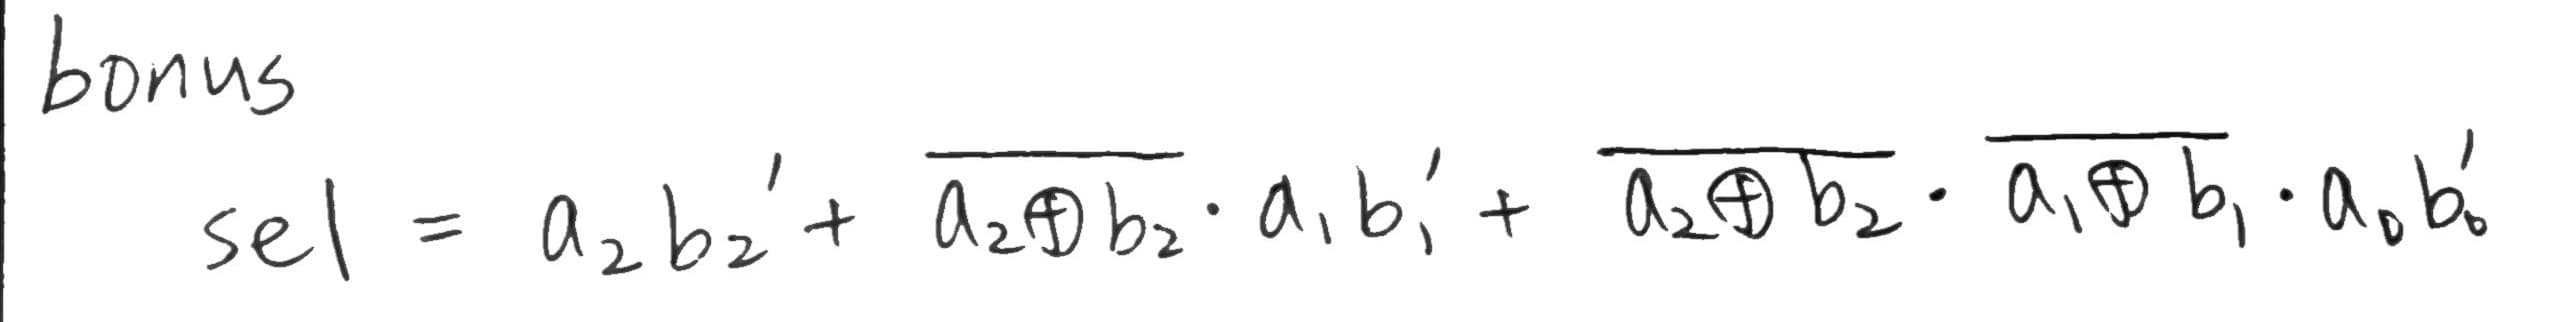 bonus
sel = a₂b₂' + \overline{a₂⊕b₂} · a₁b₁' + \overline{a₂⊕b₂} · \overline{a₁⊕b₁} · a₀b₀'